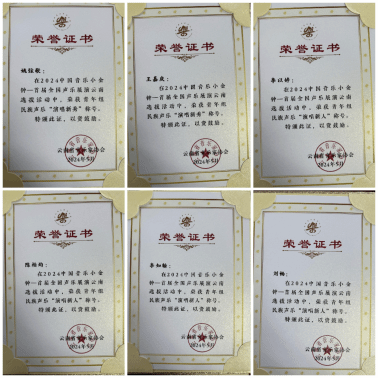 荣誉证书
在2024中国音乐小金
钟—首届全国声乐展演云南
选拔活动中，荣获青年组
民族声乐“演唱新秀”称号。
特颁此证，以资鼓励。
2024年5月
荣誉证书
在2024中国音乐小金
钟—首届全国声乐展演云南
选拔活动中，荣获青年组
民族声乐“演唱新秀”称号。
特颁此证，以资鼓励。
2024年5月
荣誉证书
在2024中国音乐小金
钟—首届全国声乐展演云南
选拔活动中，荣获青年组
民族声乐“演唱新人”称号。
特颁此证，以资鼓励。
2024年5月
荣誉证书
在2024中国音乐小金
钟—首届全国声乐展演云南
选拔活动中，荣获青年组
民族声乐“演唱新人”称号。
特颁此证，以资鼓励。
2024年5月
荣誉证书
在2024中国音乐小金
钟—首届全国声乐展演云南
选拔活动中，荣获青年组
民族声乐“演唱新人”称号。
特颁此证，以资鼓励。
2024年5月
荣誉证书
在2024中国音乐小金
钟—首届全国声乐展演云南
选拔活动中，荣获青年组
民族声乐“演唱新人”称号。
特颁此证，以资鼓励。
2024年5月